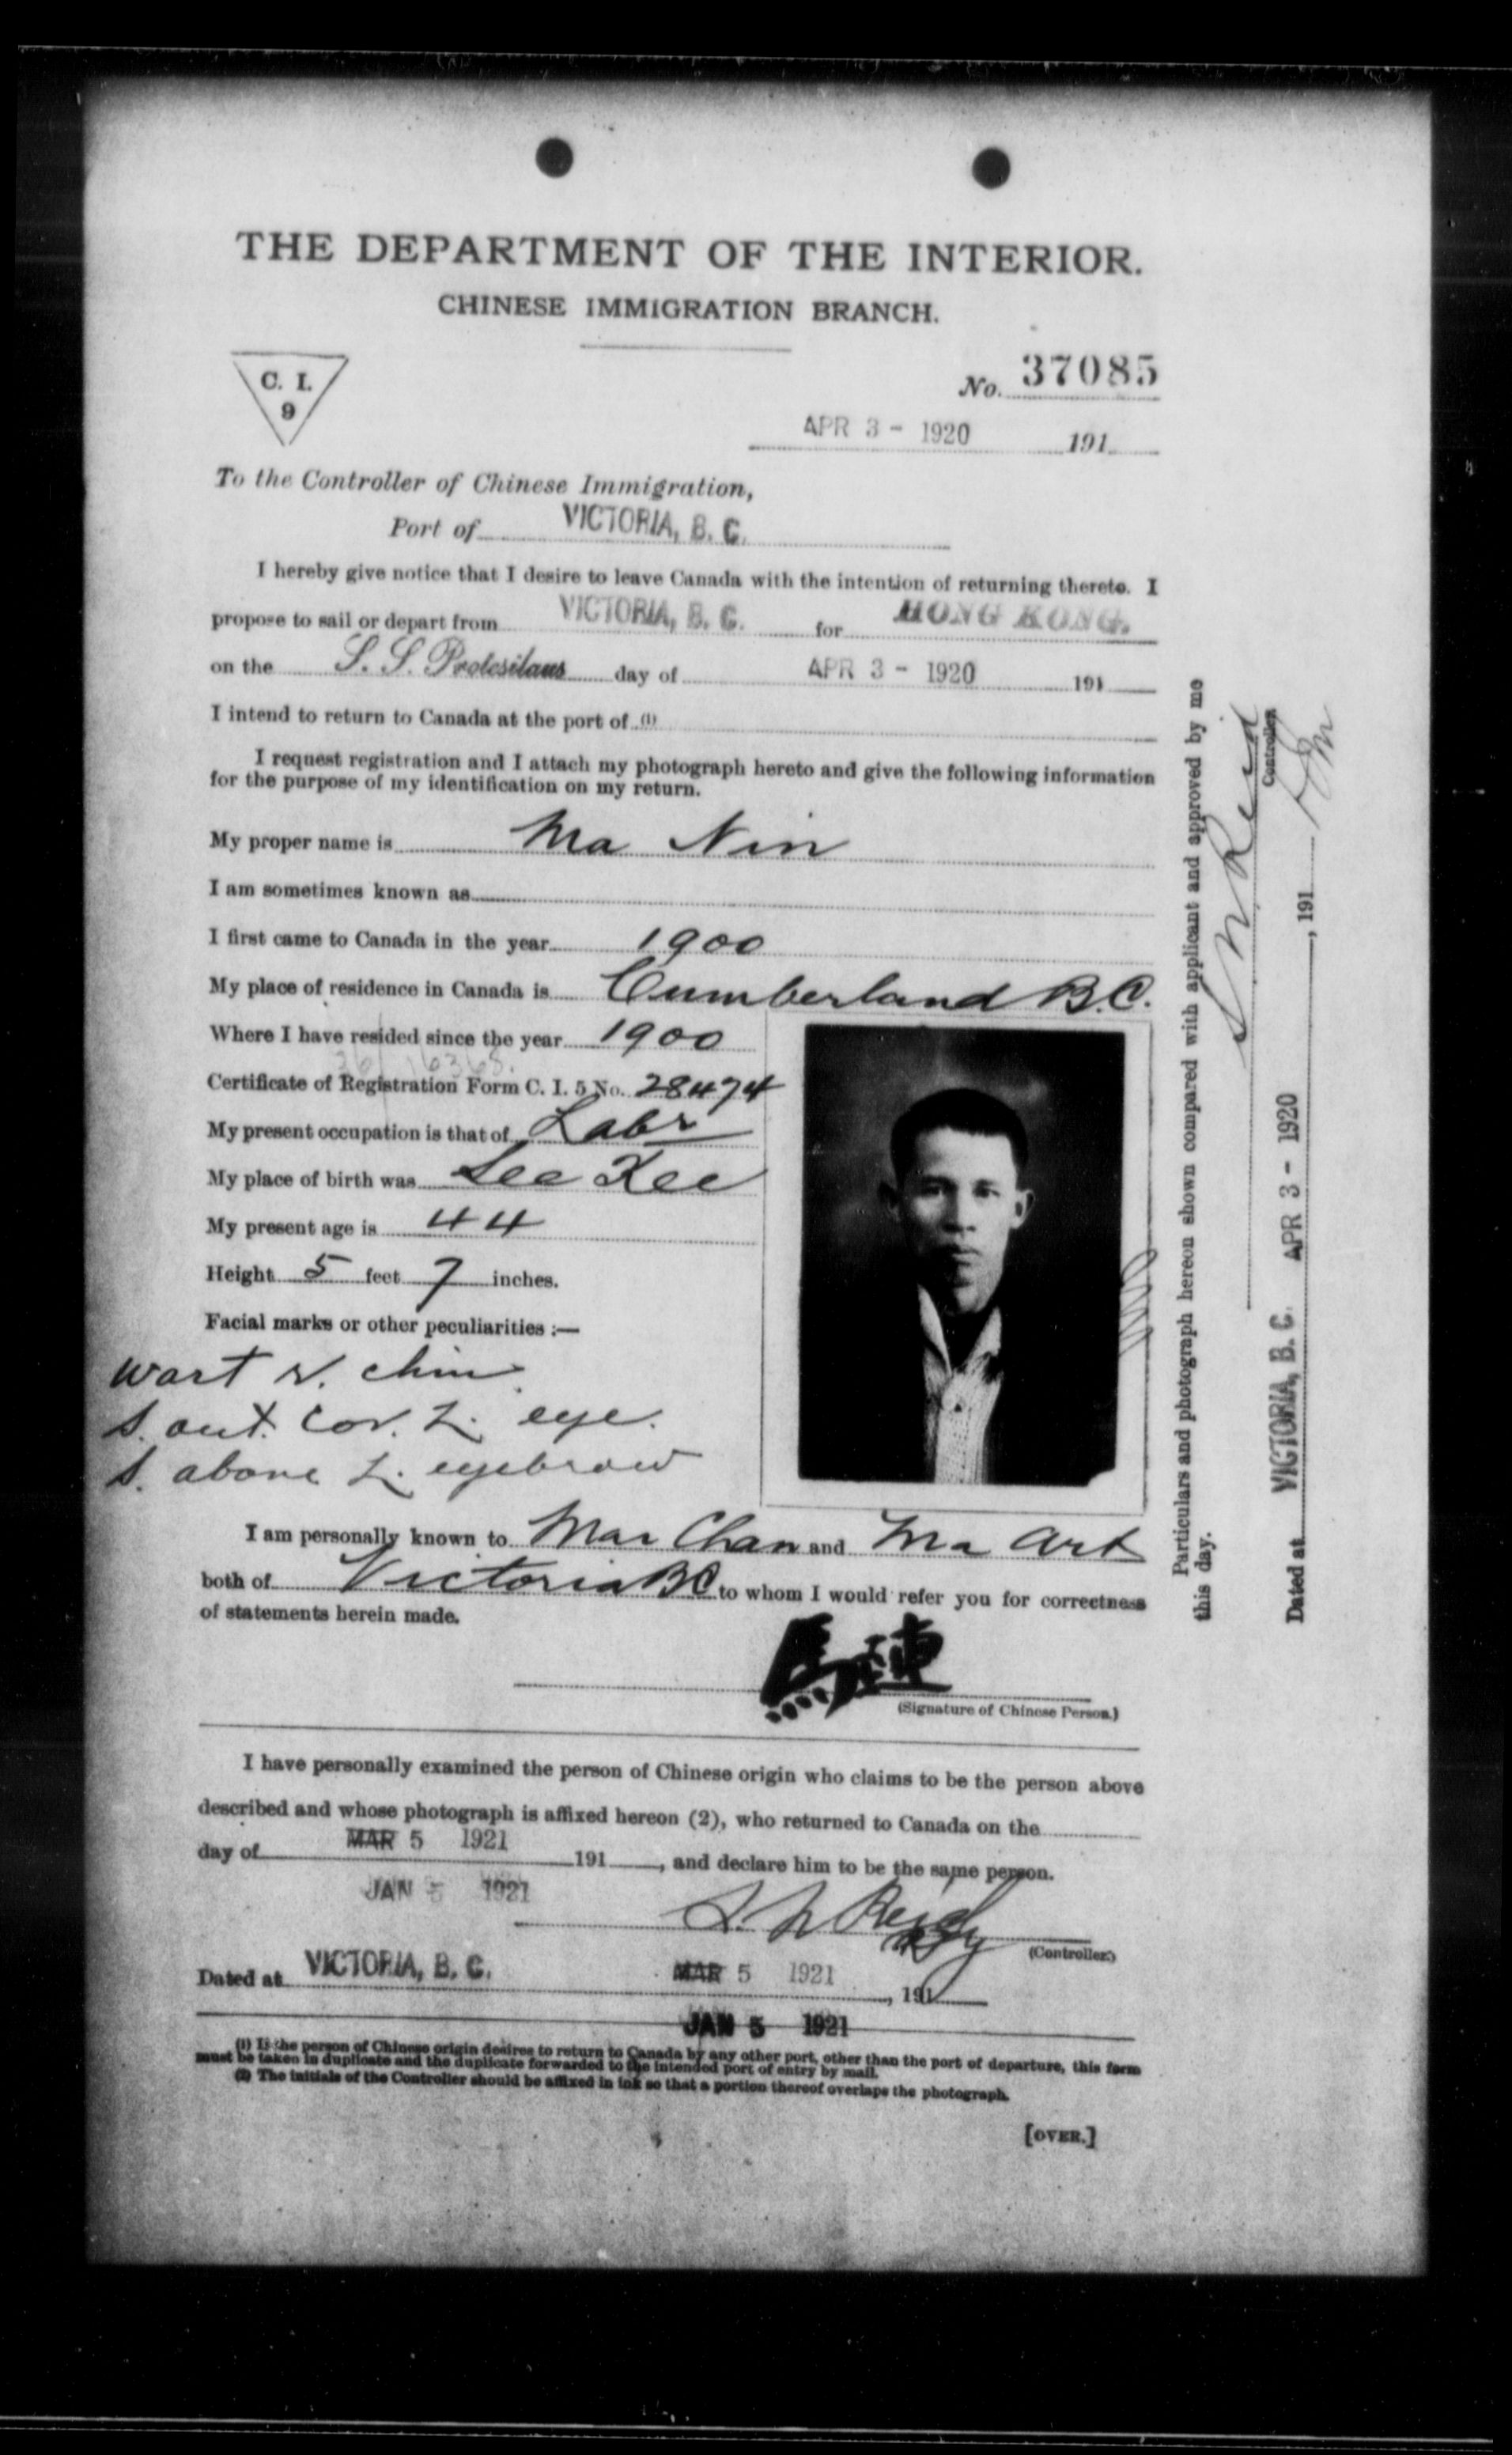 THE DEPARTMENT OF THE INTERIOR.
CHINESE IMMIGRATION BRANCH.
C. I.
9
No. 37085
APR 3 - 1920 191
To the Controller of Chinese Immigration,
Port of VICTORIA, B. C.
I hereby give notice that I desire to leave Canada with the intention of returning thereto. I
propose to sail or depart from VICTORIA, B. C. for HONG KONG.
on the S. S. Protesilaus day of APR 3 - 1920 191
I intend to return to Canada at the port of (1)
I request registration and I attach my photograph hereto and give the following information
for the purpose of my identification on my return.
My proper name is Ma Nin
I am sometimes known as
I first came to Canada in the year 1900
My place of residence in Canada is Cumberland B.C.
Where I have resided since the year 1900
Certificate of Registration Form C. I. 5 No. 28474
My present occupation is that of Labr
My place of birth was See Kee
My present age is 44
Height 5 feet 7 inches.
Facial marks or other peculiarities :—
wart r. chin
S. out. cor. L. eye.
S. above L. eyebrow
I am personally known to Mar Chan and Ma Art
both of Victoria BC to whom I would refer you for correctness
of statements herein made.
馬璉
(Signature of Chinese Person.)
I have personally examined the person of Chinese origin who claims to be the person above
described and whose photograph is affixed hereon (2), who returned to Canada on the
day of MAR 5 1921 191 , and declare him to be the same person.
JAN 5 1921
(Controller.)
Dated at VICTORIA, B. C. MAR 5 1921 , 191
JAN 5 1921
(1) If the person of Chinese origin desires to return to Canada by any other port, other than the port of departure, this form
must be taken in duplicate and the duplicate forwarded to the intended port of entry by mail.
(2) The initials of the Controller should be affixed in ink so that a portion thereof overlaps the photograph.
[OVER.]
Particulars and photograph hereon shown compared with applicant and approved by me
this day.
Controller.
Dated at VICTORIA, B. C. APR 3 - 1920 , 191